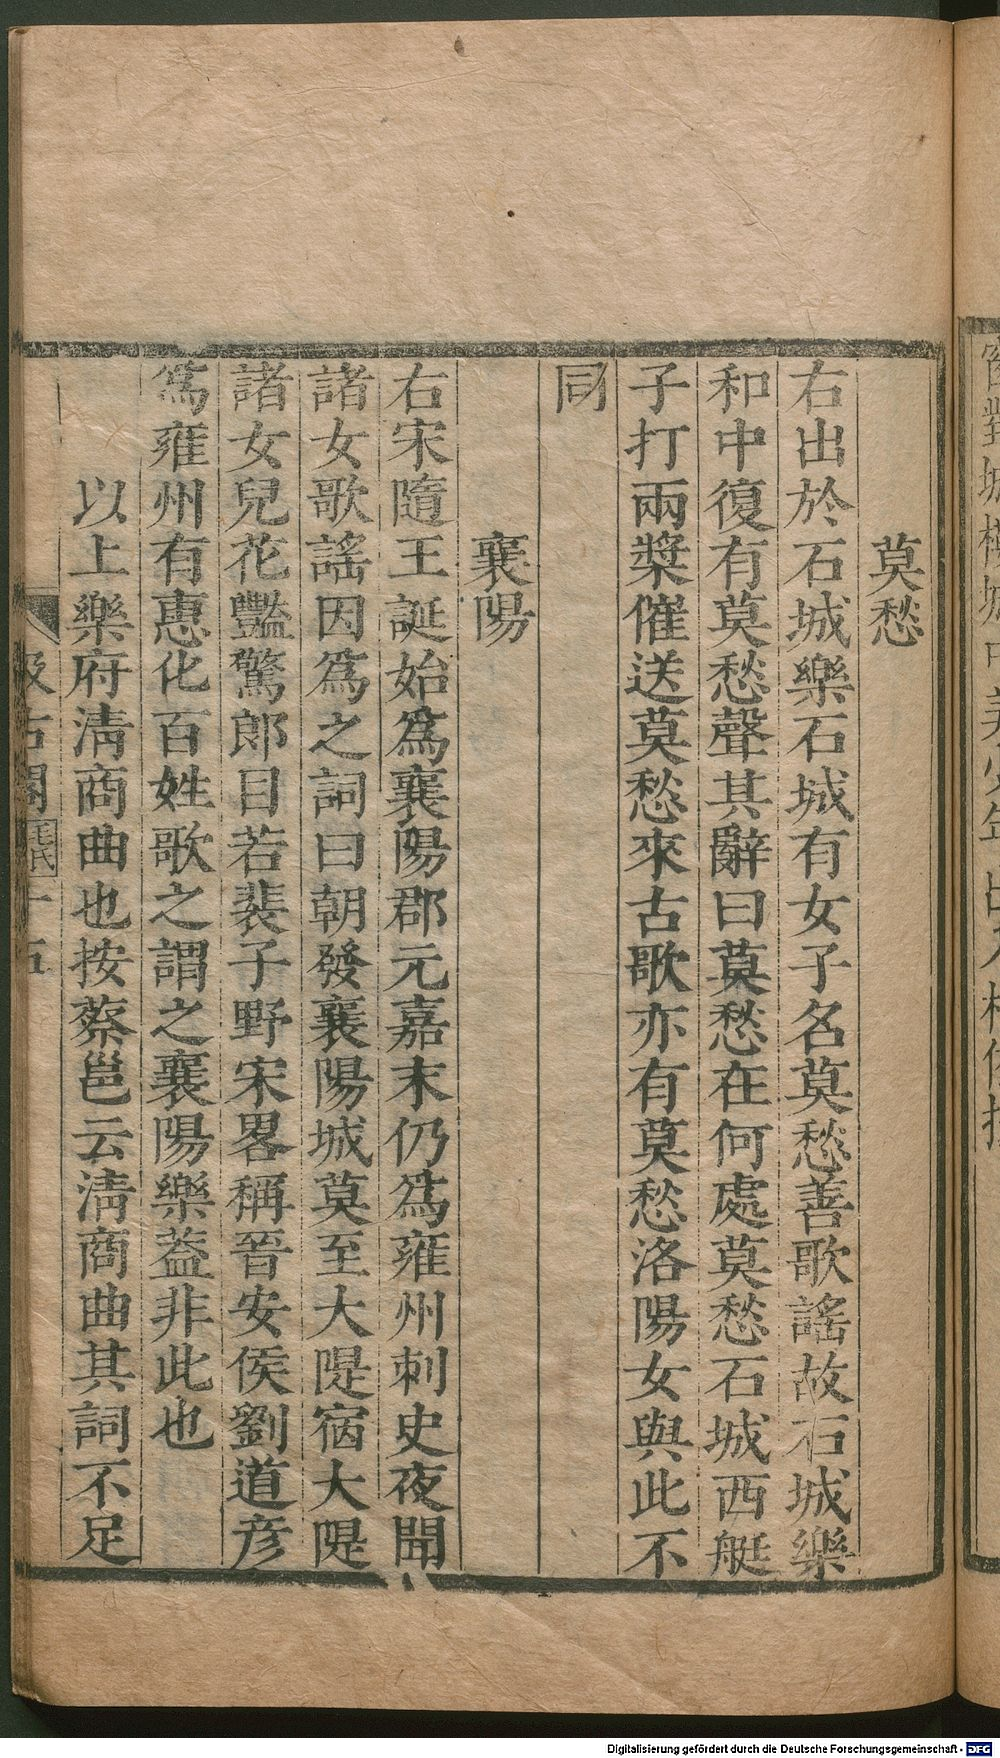 莫愁
右出於石城樂石城有女子名莫愁善歌謠故石城樂
和中復有莫愁聲其辭曰莫愁在何處莫愁石城西艇
子打兩槳催送莫愁來古歌亦有莫愁洛陽女與此不
同
襄陽
右宋隨王誕始爲襄陽郡元嘉末仍爲雍州刺史夜聞
諸女歌謠因爲之詞曰朝發襄陽城莫至大隄宿大隄
諸女兒花豔驚郎目若裴子野宋畧稱晉安侯劉道彥
爲雍州有惠化百姓歌之謂之襄陽樂葢非此也
以上樂府淸商曲也按蔡邕云淸商曲其詞不足
汲古閣
毛氏
十五
Digitalisierung gefördert durch die Deutsche Forschungsgemeinschaft - DFG